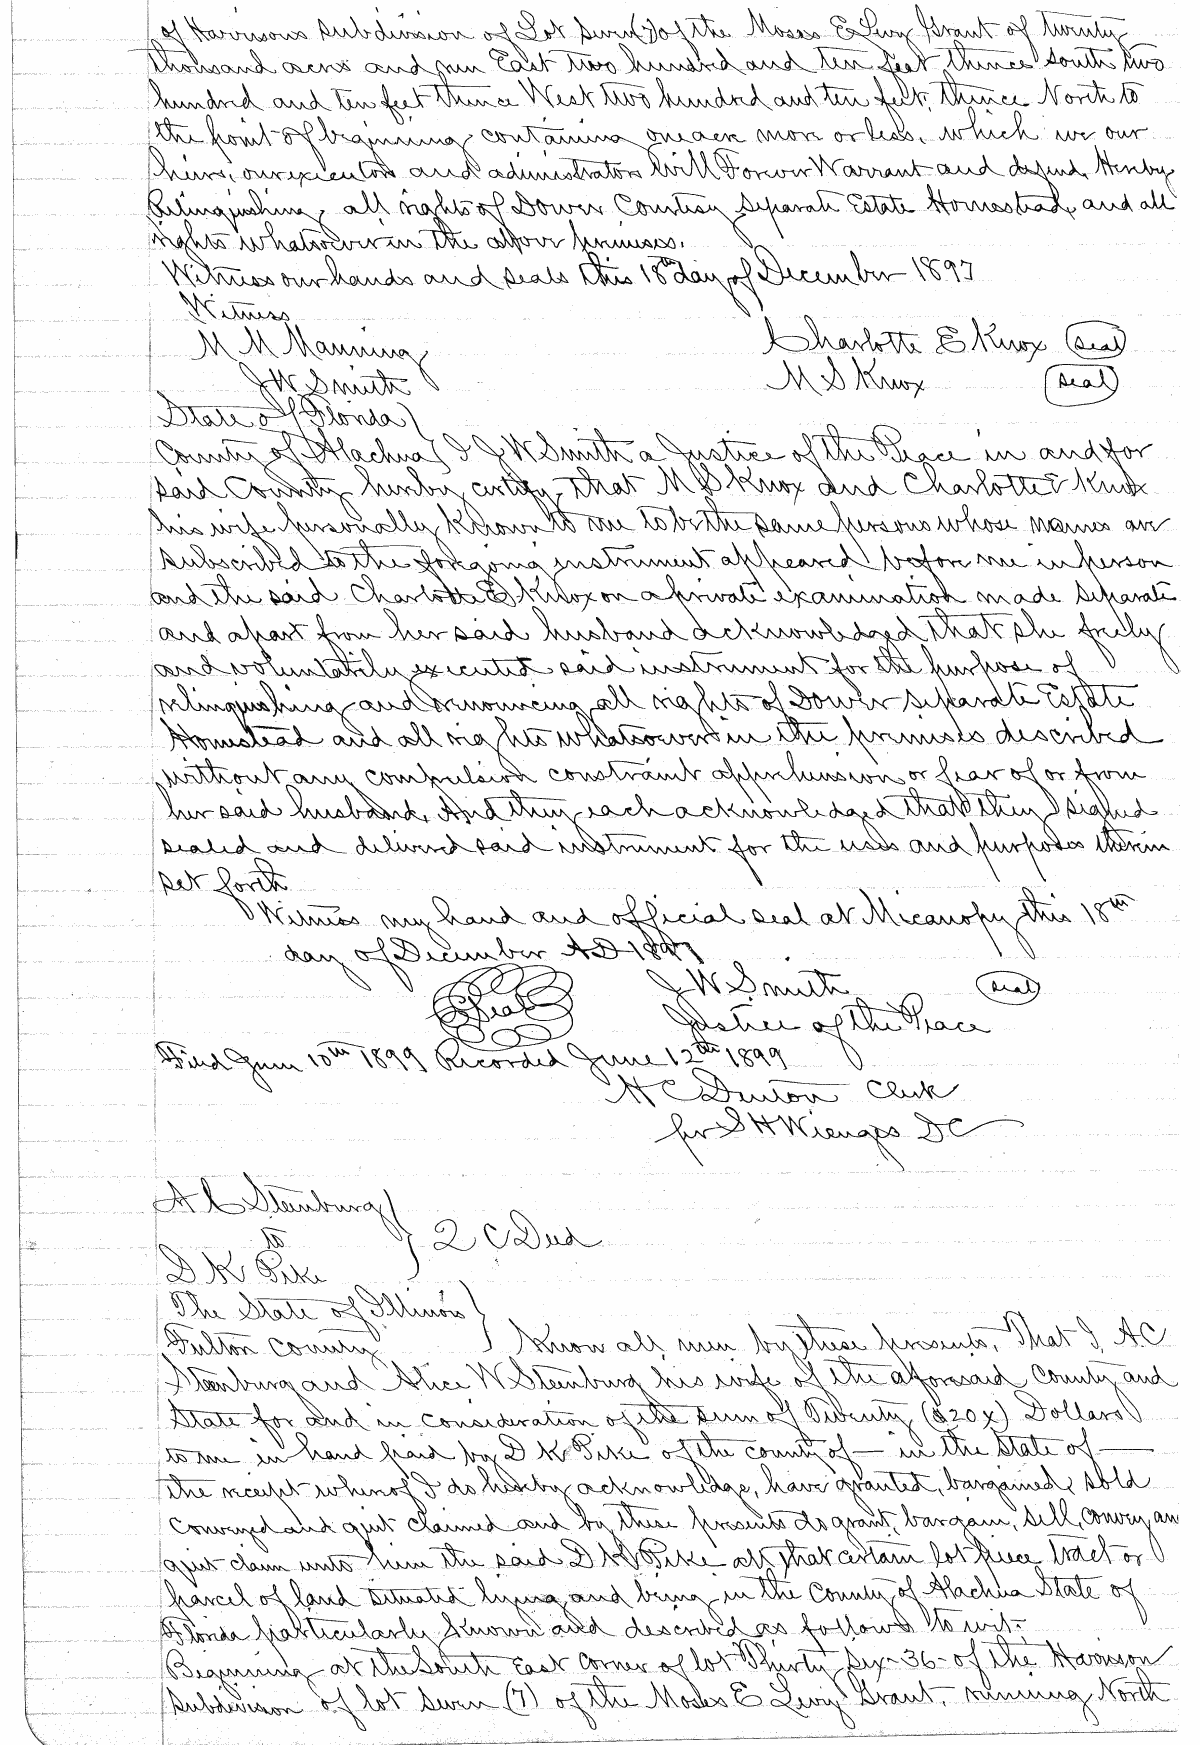 of Harrisons Subdivision of Lot Seven (7) of the Moses E Levy Grant of twenty
thousand acres and run East two hundred and ten feet thence South two
hundred and ten feet thence West two hundred and ten feet, thence North to
the point of beginning containing one acre more or less. which we our
heirs, our executors and administrators Will Forever Warrant and defend, Hereby
Relinquishing all rights of Dower Courtesy Separate Estate Homestead, and all
rights whatsoever in the above premises.
Witness our hands and seals this 18th day of December 1897
Witness
M M Manning
Charlotte E Knox (seal)
J W Smith
M S Knox (seal)
State of Florida)
County of Alachua) I J W Smith a Justice of the Peace in and for
said County hereby certify that M S Knox and Charlotte E Knox
his wife personally Known to me to be the same persons whose names are
subscribed to the foregoing instrument appeared before me in person
and the said Charlotte E Knox on a private examination made separate
and apart from her said husband acknowledged that she freely
and voluntarily executed said instrument for the purpose of
relinquishing and renouncing all rights of Dower separate Estate
Homestead and all rights whatsoever in the premises described
without any compulsion constraint apprehension or fear of or from
her said husband. And they each acknowledged that they signed
sealed and delivered said instrument for the uses and purposes therein
set forth
Witness my hand and official seal at Micanopy this 18th
day of December AD 1897
(Seal)
J W Smith (seal)
Justice of the Peace
Filed June 10th 1899 Recorded June 12th 1899
H C Denton Clerk
per S H Wienges DC
A C Steenburg)
to } 2 C Deed
D K Pike
The State of Illinois)
Fulton County ) Know all men by these presents, That I, A C
Steenburg and Alice W Steenburg his wife of the aforesaid County and
State for and in consideration of the sum of Twenty ($20x) Dollars
to me in hand paid by D K Pike of the county of — in the State of —
the receipt whereof I do hereby acknowledge, have granted, bargained, sold
conveyed and quit claimed and by these presents do grant, bargain, sell, convey an
quit claim unto him the said D K Pike all that certain lot piece tract or
parcel of land situated lying and being in the County of Alachua State of
Florida particularly known and described as follows to wit:-
Beginning at the South East Corner of lot Thirty Six -36- of the Harrison
Subdivison of lot seven (7) of the Moses E Levy Grant, running North